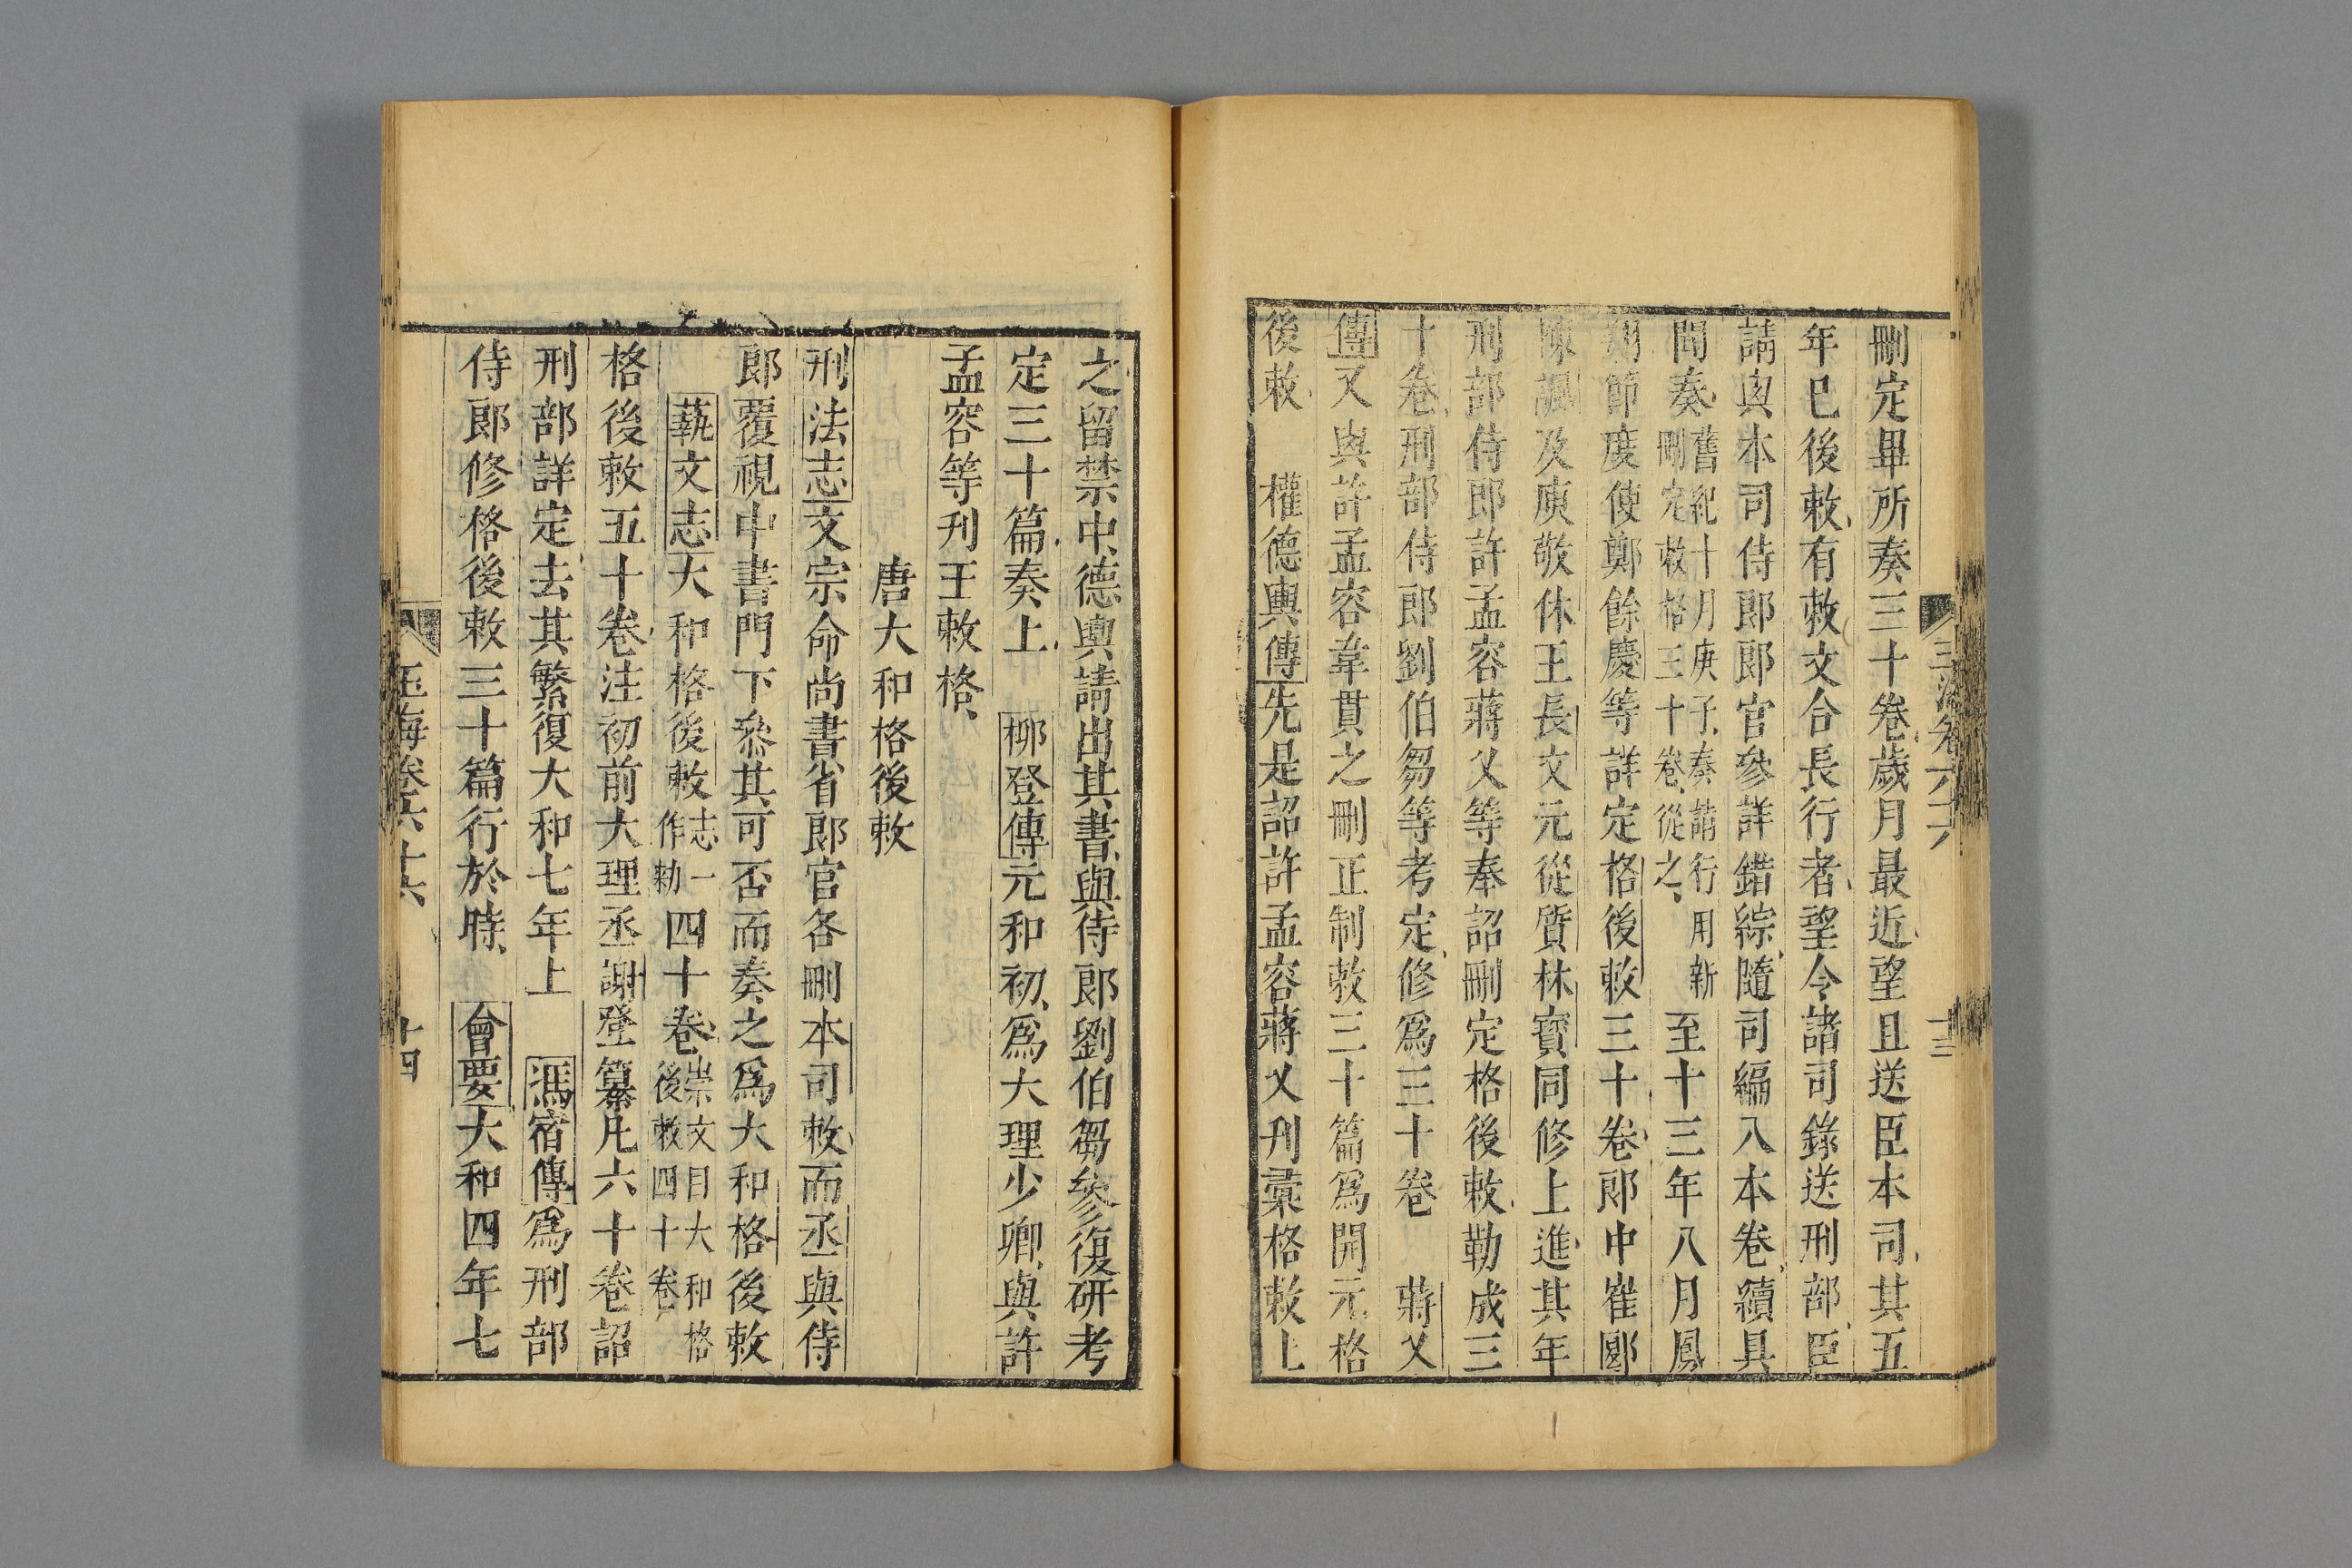 卷六六 十三
刪定畢所奏三十卷歲月最近望且送臣本司其五
年已後敕有敕文合長行者望令諸司錄送刑部臣
請與本司侍郎郎官參詳錯綜隨司編入本卷續具
聞奏舊紀十月庚子奏請行用新刪定敕格三十卷從之至十三年八月鳳
翔節度使鄭餘慶等詳定格後敕三十卷郎中崔郾
陳諷及庾敬休王長文元從質林寶同修上進其年
刑部侍郎許孟容蔣乂等奉詔刪定格後敕勒成三
十卷刑部侍郎劉伯芻等考定修爲三十卷 蔣乂
傳又與許孟容韋貫之刪正制敕三十篇爲開元格
後敕 權德輿傳先是詔許孟容蔣乂刊彙格敕上
之留禁中德輿請出其書與侍郎劉伯芻參復研考
定三十篇奏上 柳登傳元和初爲大理少卿與許
孟容等刊王敕格
唐大和格後敕
刑法志文宗命尚書省郎官各刪本司敕而丞與侍
郎覆視中書門下參其可否而奏之爲大和格後敕
蓺文志大和格後敕志一作勑四十卷崇文目大和格後敕四十卷
格後敕五十卷注初前大理丞謝登纂凡六十卷詔
刑部詳定去其繁復大和七年上 馮宿傳爲刑部
侍郎修格後敕三十篇行於時 會要大和四年七
玉海卷六十六 十四